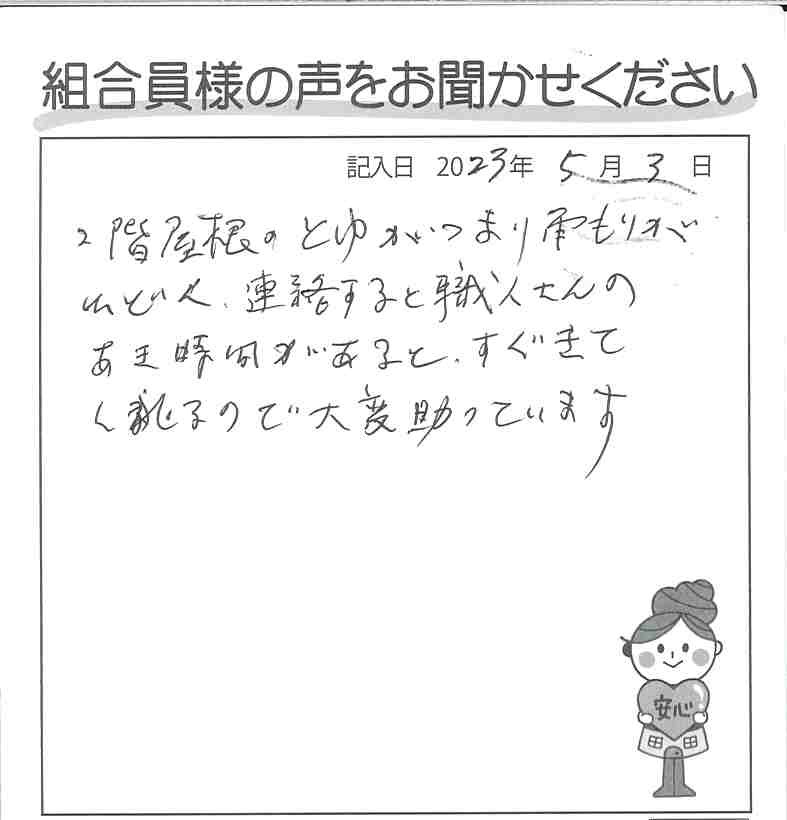 組合員様の声をお聞かせください
記入日 2023年 5月 3日
2階屋根のとゆがつまり雨もりが
ひどく、連絡すると職人さんの
あき時間があると、すぐきて
くれるので大変助っています
安心